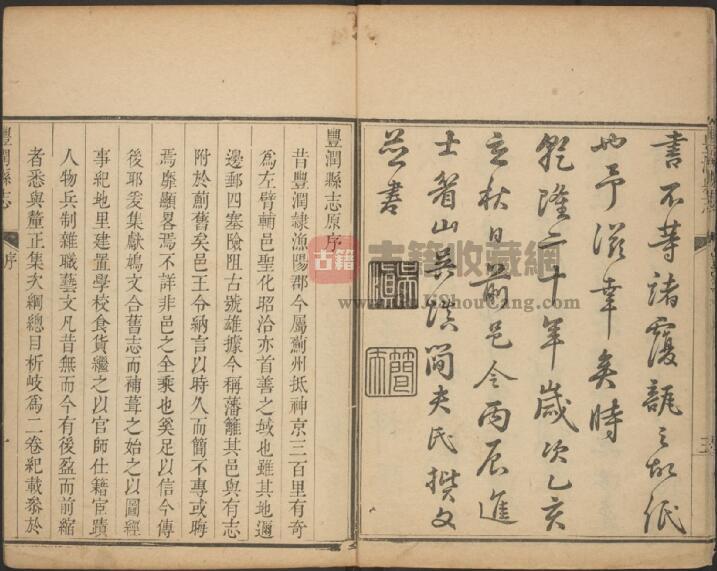 書不等諸覆瓿之故紙
也予滋幸矣時
乾隆二十年歲次乙亥
立秋日前邑令丙辰進
士山吳慎簡夫氏撰文
並書
豐潤縣志原序
昔豐潤隸漁陽郡今屬薊州抵神京三百里有奇
為左臂輔邑聖化昭洽亦首善之域也雖其地邇
邊郵四塞險阻古號雄據今稱藩籬其邑與有志
附於薊舊矣邑王令納言以時久而簡不專或晦
焉靡顯畧焉不詳非邑之全乘也奚足以信今傳
後耶爰集獻鳩文合舊志而補葺之始之以圖經
事紀地里建置學校食貨繼之以官師仕籍宦蹟
人物兵制雜職藝文凡昔無而今有後盈而前縮
者悉與釐正集大綱總目析岐為二卷紀載於
豐潤縣志
序
一
古籍
古籍收藏网